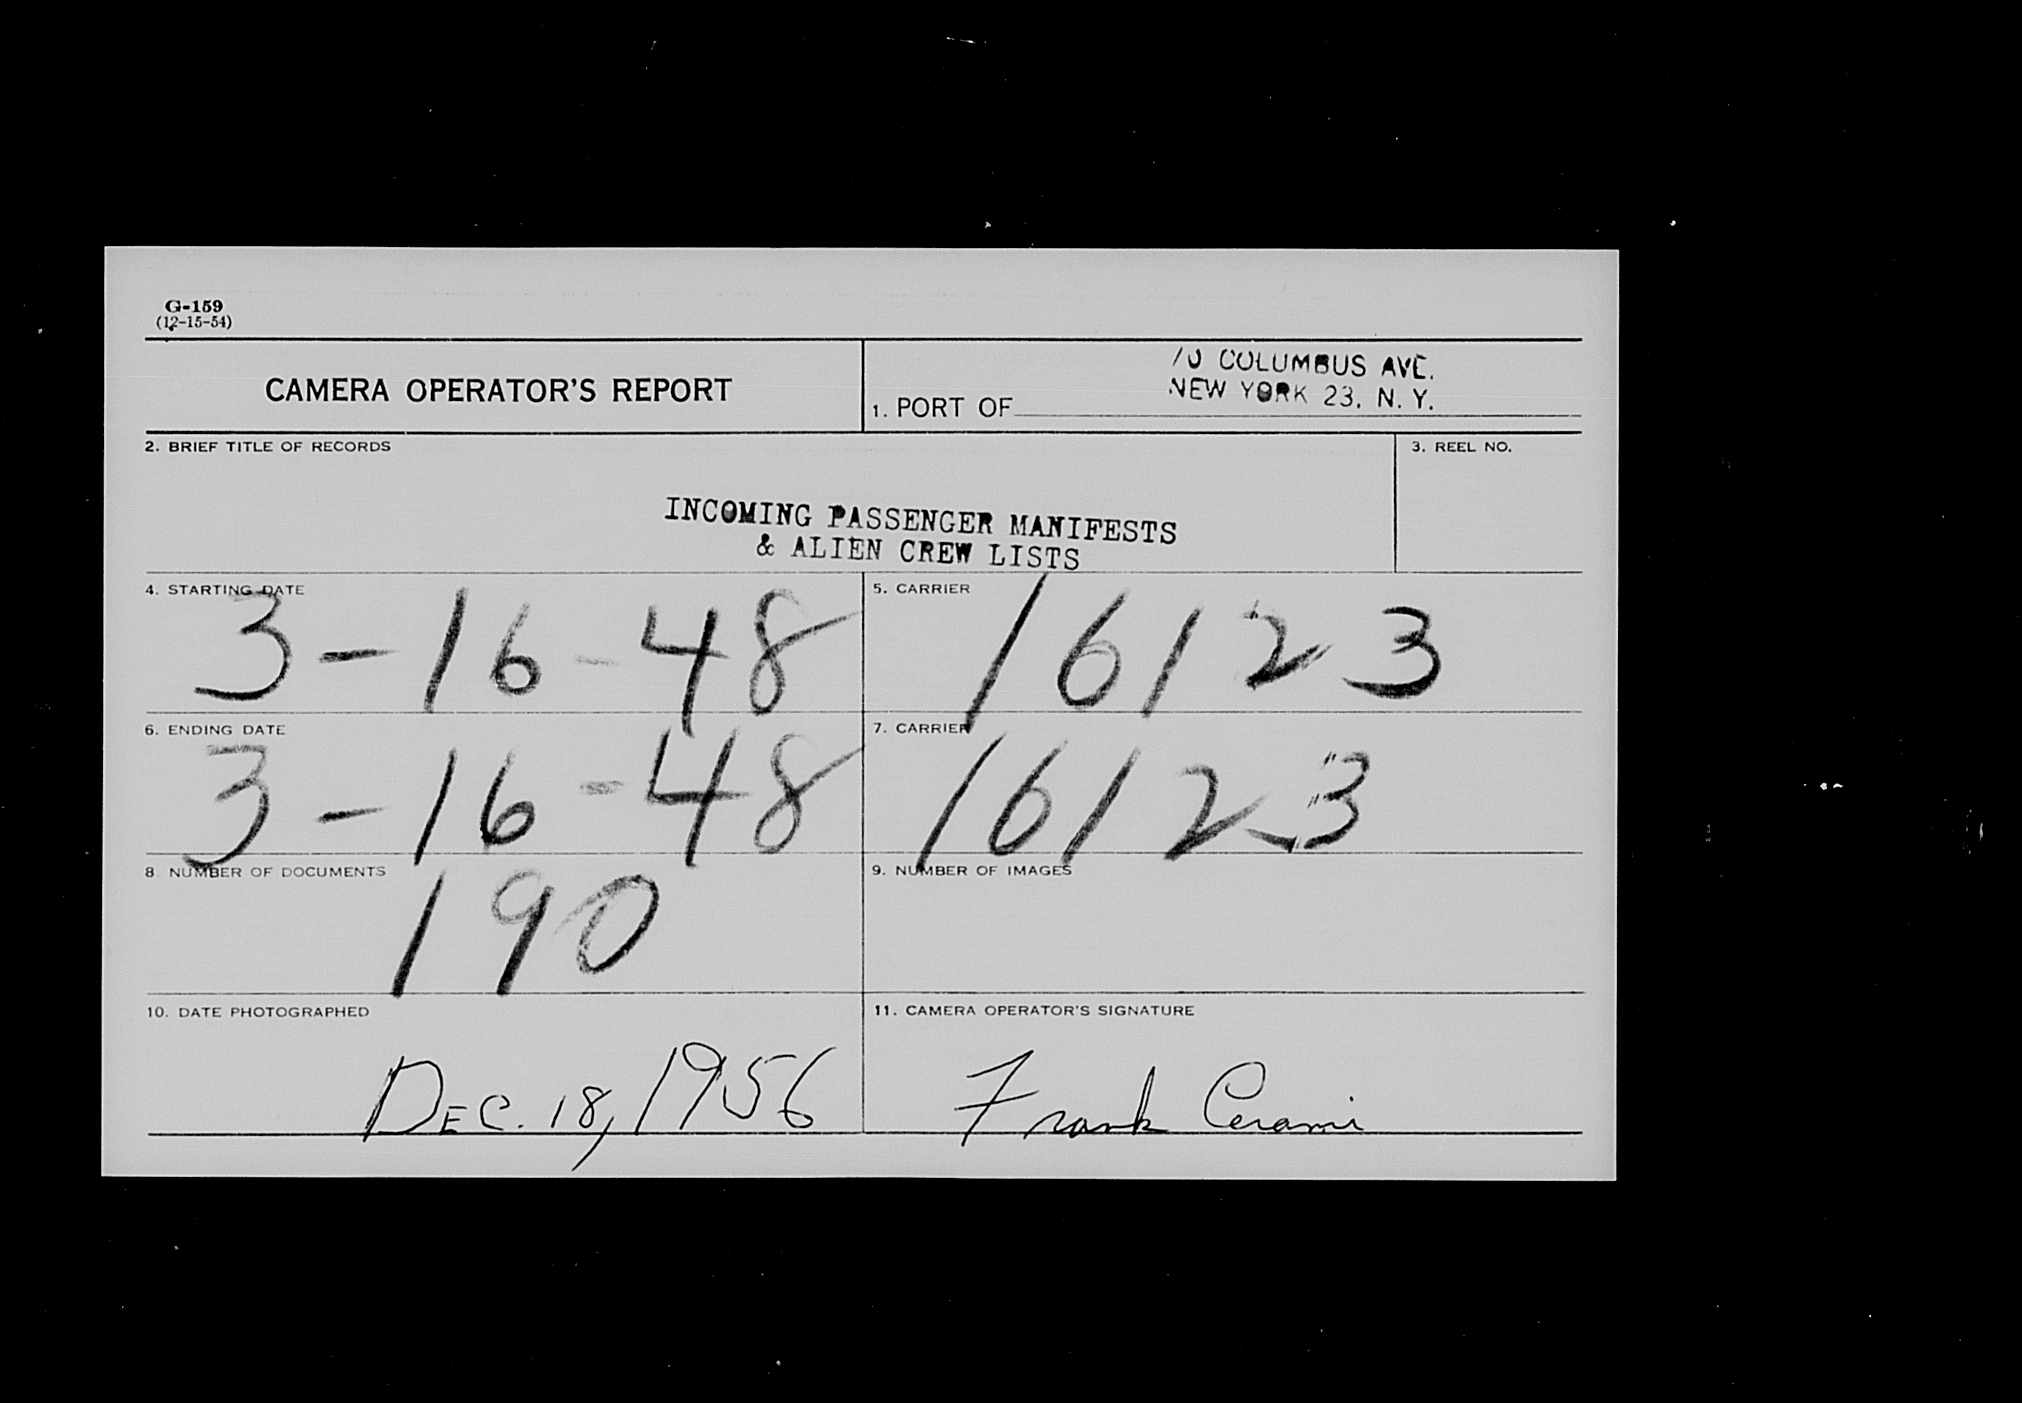 G-159
(12-15-54)
CAMERA OPERATOR'S REPORT
70 COLUMBUS AVE.
NEW YORK 23, N. Y.
1. PORT OF
2. BRIEF TITLE OF RECORDS
3. REEL NO.
INCOMING PASSENGER MANIFESTS
& ALIEN CREW LISTS
4. STARTING DATE
3-16-48
5. CARRIER
16123
6. ENDING DATE
3-16-48
7. CARRIER
16123
8 NUMBER OF DOCUMENTS
190
9. NUMBER OF IMAGES
10. DATE PHOTOGRAPHED
DEC. 18, 1956
11. CAMERA OPERATOR'S SIGNATURE
Frank Cerami